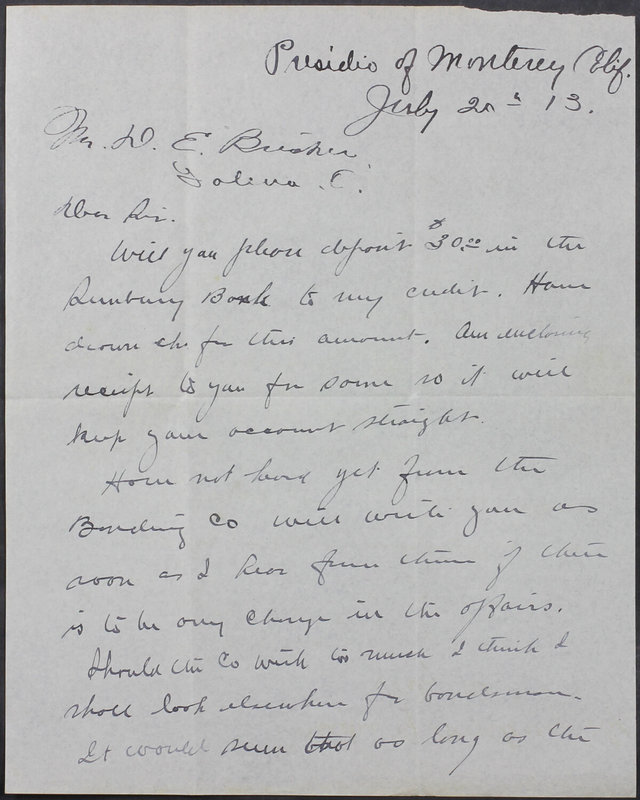 Presidio of Monterey Calif.
July 20th 13.
Mr. D. E. Bricker
Galena. O.
Dear Sir.
Will you please deposit $30.00 in the
Sunbury Bank to my credit. Have
drawn chk for this amount. Am enclosing
receipt to you for same so it will
keep your account straight.
Have not heard yet from the
Bonding Co will write you as
soon as I hear from them if there
is to be any change in the affairs.
Should the Co wish too much I think I
shall look elsewhere for bondsman.
It would seem that as long as the